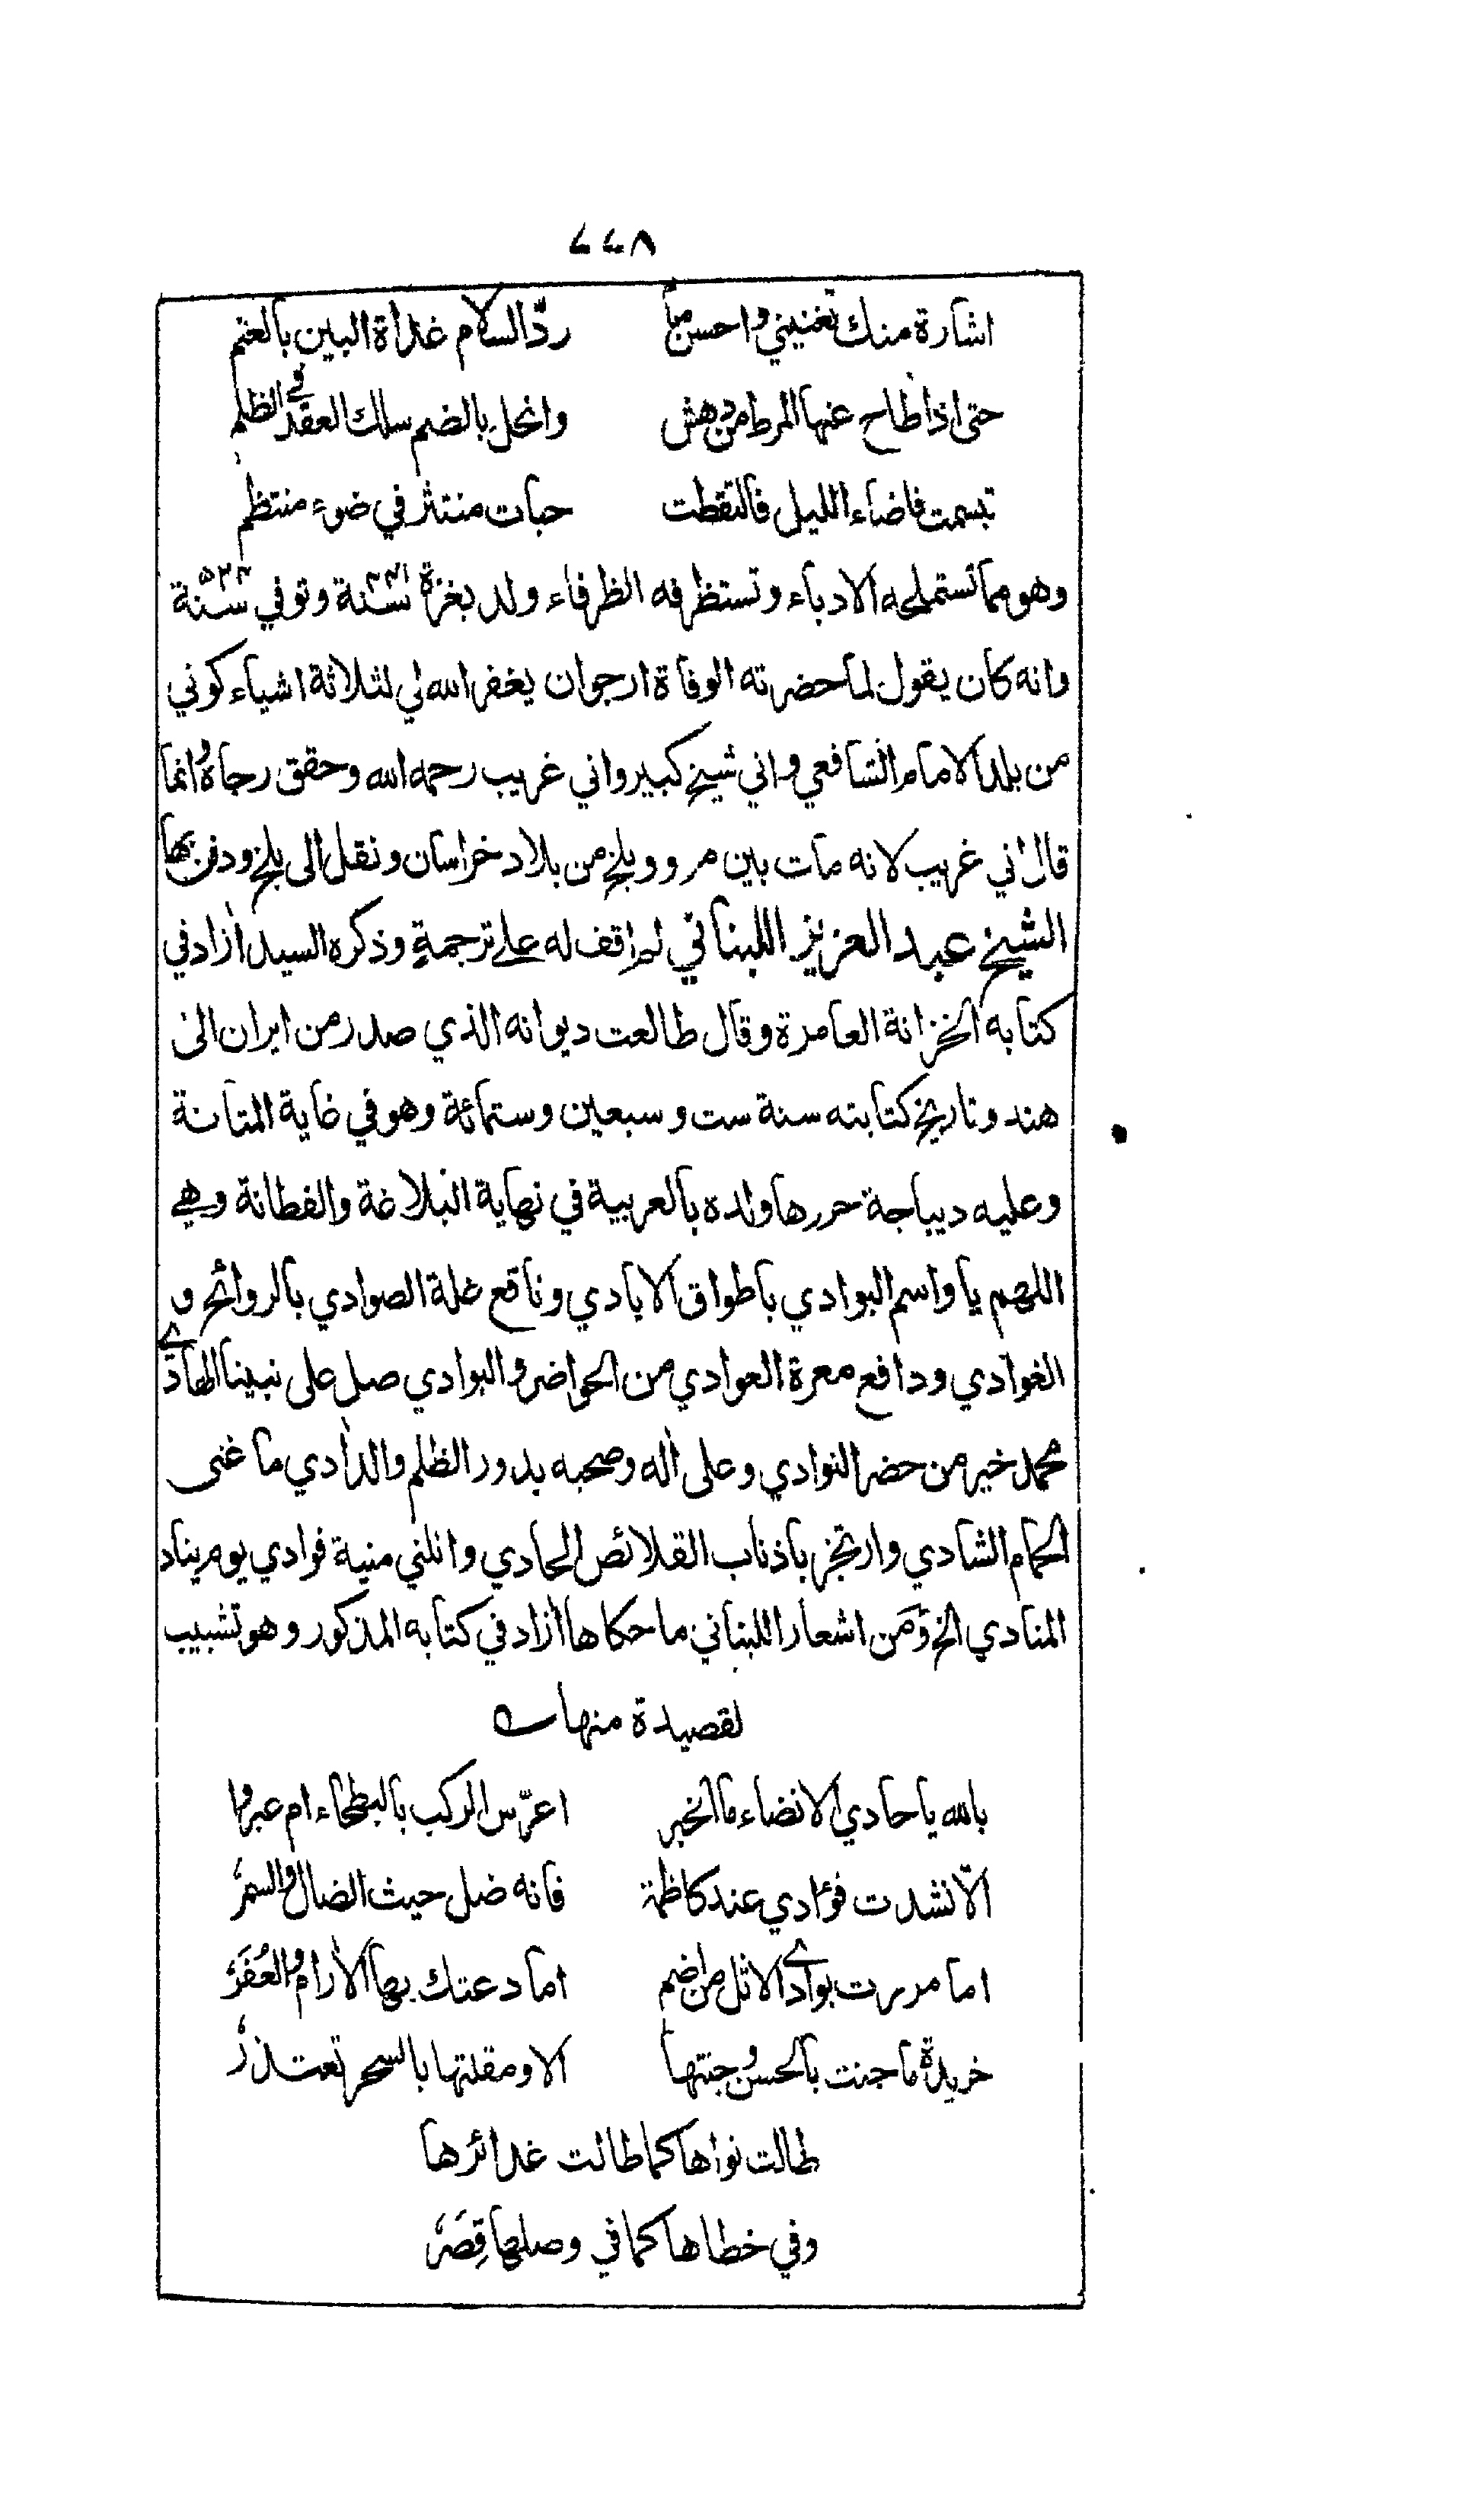 ٧٧٨
اشارة منك تغنيني واحسن ما ردّ السلام غداة البين بالعنم
حتى اذا طاح عنها المرط من دهش وانحل بالضم سلك العقد في الظلم
تبسمت فاضاء الليل فالتقطت حبات منتثر في ضوء منتظم
وهو مما تستملحه الادباء وتستظرفه الظرفاء ولد بغزة سنة وتوفي سنة
وانه كان يقول لما حضرته الوفاة ارجو ان يغفر الله لي لثلاثة اشياء كوني
من بلد الامام الشافعي واني شيخ كبير واني غريب رحمه الله وحقق رجاهُ انما
قال اني غريب لانه مات بين مرو وبلخ من بلاد خراسان ونقل الى بلخ ودفن بها
الشيخ عبد العزيز اللبناني لم اقف له على ترجمةٍ وذكره السيد اٰزاد في
كتابه الخزانة العامرة وقال طالعت ديوانه الذي صدر من ايران الى
هند وتاريخ كتابته سنة ست وسبعين وستمائة وهو في غاية المتانة
وعليه ديباجة حررها ولده بالعربية في نهاية البلاغة والفطانة وهي
اللهم يا واسم البوادي باطواق الايادي وناقع غلة الصوادي بالروائح و
الغوادي ودافع معرة العوادي من الحواضر والبوادي صل على نبينا الهادي
محمد خير من حضر النوادي وعلى اٰله وصحبه بدور الظلم والداٰدي ما غنى
الحمام الشادي وارتجز باذناب القلائص الحادي وانلني منية فوادي يوم يناد
المنادي الخ ومن اشعار اللبناني ما حكاها اٰزاد في كتابه المذكور وهو تشبيب
لقصيدة منها
بالله يا حادي الانضاء ما الخبر اعرّس الركب بالبطحاء ام عبروا
الّا نشدت فؤادي عند كاظمة فانه ضل حيث الضال والسمرُ
اما مررت بوادي الاثل من اضم اما دعتك بها الاٰرام والعُفَرُ
خريدة ما جنت بالحسن وجنتها الا ومقلتها بالسحر تعتذرُ
طالت نواها كما طالت غدائرها
وفي خطاها كما في وصلها قِصَرُ